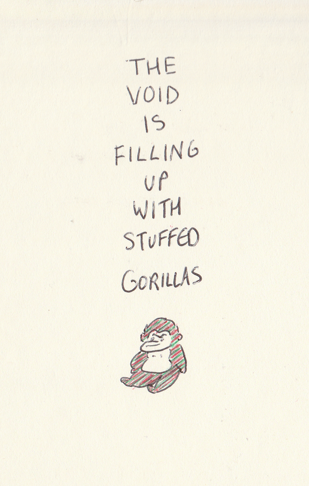 THE
VOID
IS
FILLING
UP
WITH
STUFFED
GORILLAS